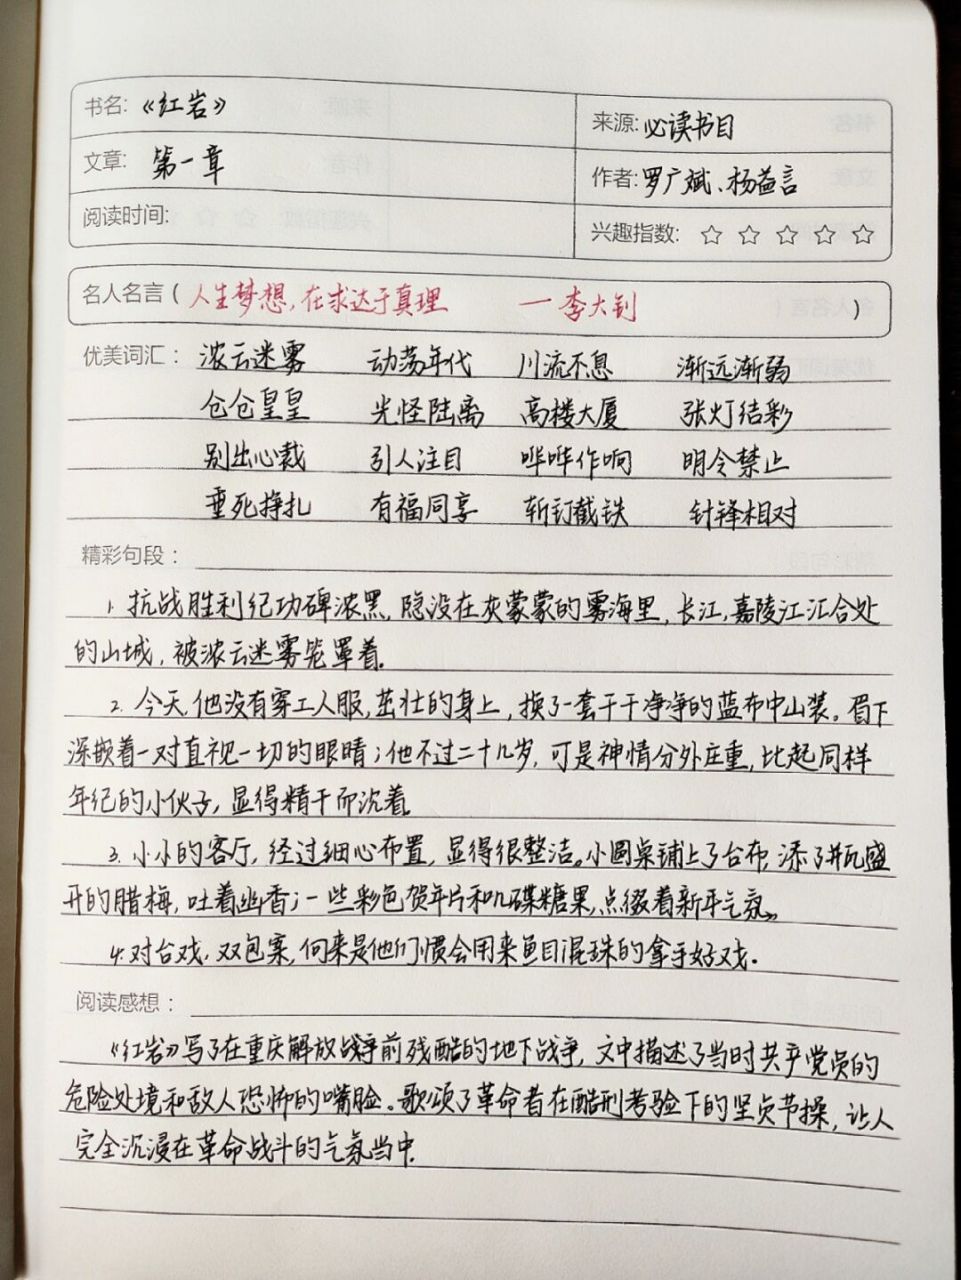 书名:《红岩》
来源:必读书目
文章: 第一章
作者:罗广斌、杨益言
阅读时间:
兴趣指数: ☆ ☆ ☆ ☆ ☆
名人名言(人生梦想,在求达于真理 一李大钊)
优美词汇: 浓云迷雾 动荡年代 川流不息 渐远渐弱
仓仓皇皇 光怪陆离 高楼大厦 张灯结彩
别出心裁 引人注目 哗哗作响 明令禁止
垂死挣扎 有福同享 斩钉截铁 针锋相对
精彩句段:
1. 抗战胜利纪功碑浓黑,隐没在灰蒙蒙的雾海里,长江,嘉陵江汇合处
的山城,被浓云迷雾笼罩着。
2. 今天,他没有穿工人服,茁壮的身上,换了一套干干净净的蓝布中山装。眉下
深嵌着一对直视一切的眼睛;他不过二十几岁,可是神情分外庄重,比起同样
年纪的小伙子,显得精干而沉着。
3. 小小的客厅,经过细心布置,显得很整洁。小圆桌铺上了台布,添了瓶盛
开的腊梅,吐着幽香;一些彩色贺年片和几碟糖果,点缀着新年气氛。
4. 对台戏,双包案,向来是他们惯会用来鱼目混珠的拿手好戏.
阅读感想:
《红岩》写了在重庆解放战争前残酷的地下战争,文中描述了当时共产党员的
危险处境和敌人恐怖的嘴脸。歌颂了革命者在酷刑考验下的坚贞节操,让人
完全沉浸在革命战斗的气氛当中.